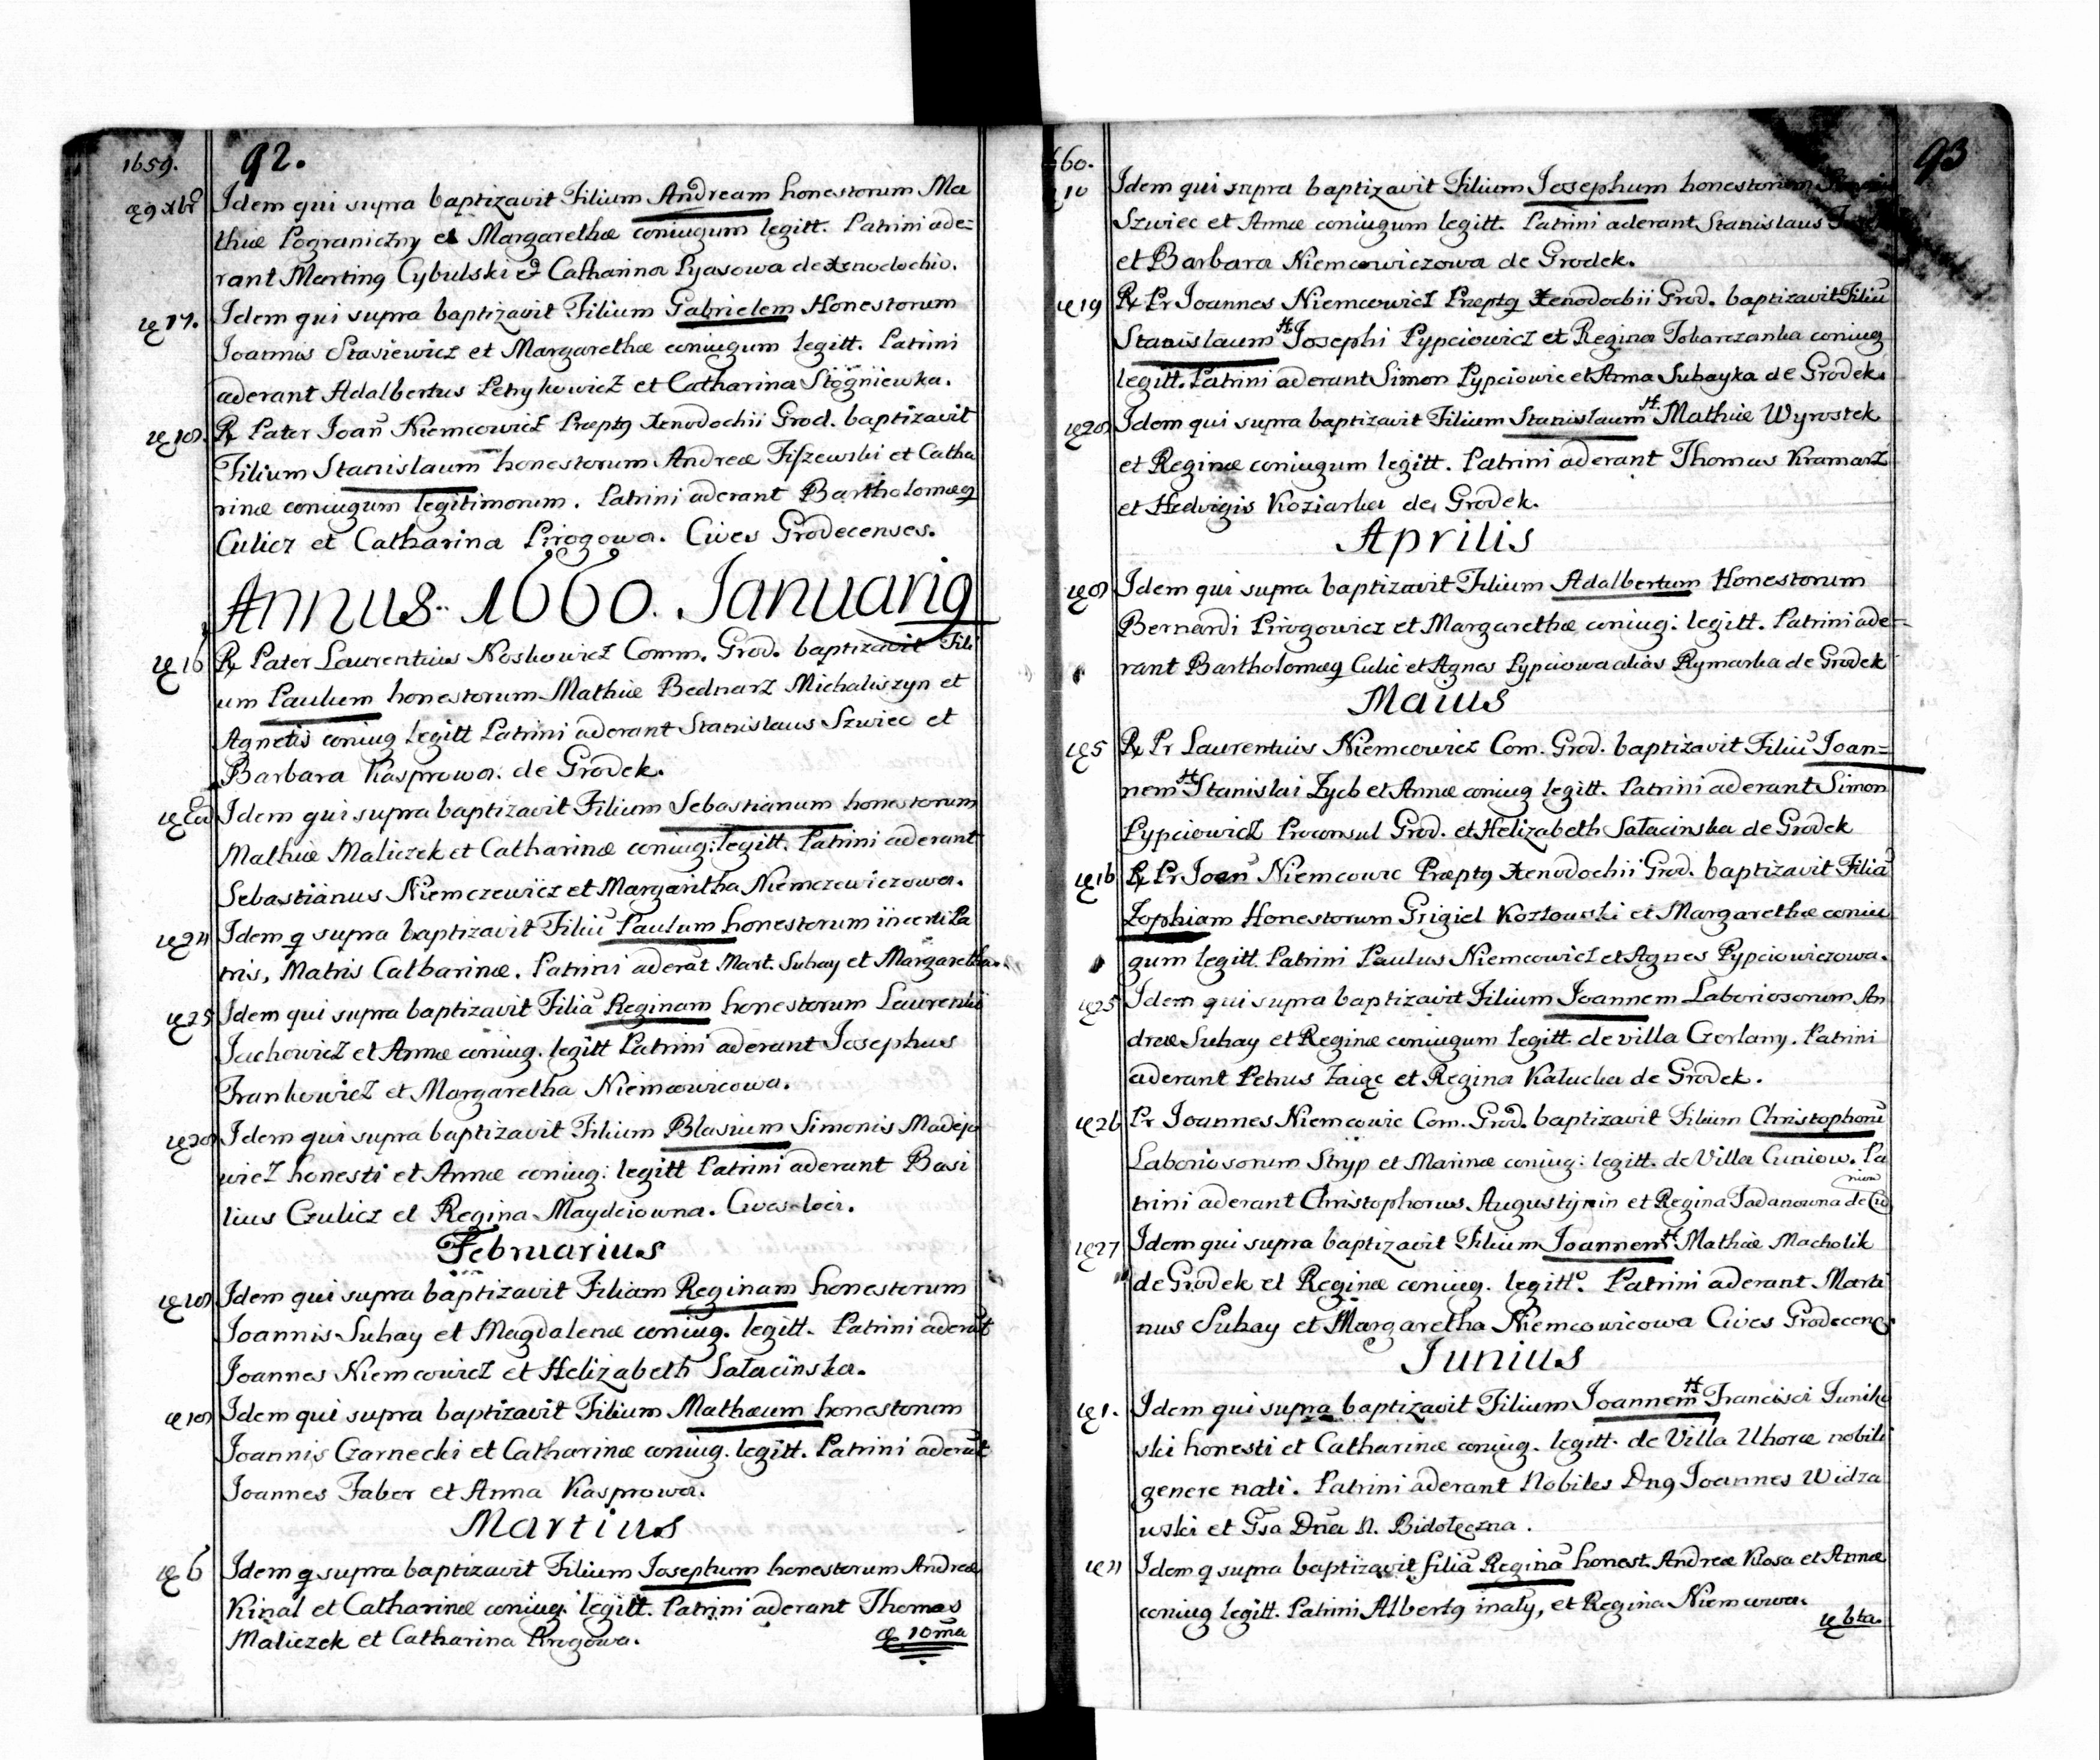 1659.
92.
9 xbr Idem qui supra baptizavit Filium Andream honestorum Ma
thiæ Pograniczny et Margarethæ coniugum legitt. Patrini ade=
rant Martinꝯ Cybulski & Catharina Pyasowa de Xenodochio.
17. Idem qui supra baptizavit Filium Gabrielem Honestorum
Joannis Stasiewicz et Margarethæ coniugum legitt. Patrini
aderant Adalbertus Petrykowicz et Catharina Stogniewka.
R Pater Joan̄ Niemcowicz Præptꝯ Xenodochii Grod. baptizavit
Filium Stanislaum honestorum Andreæ Fiszewski et Catha
rinæ coniugum legitimorum. Patrini aderant Bartholomæꝯ
Culicz et Catharina Pirogowa. Cives Grodecenses.
Annus. 1660. Januariꝯ
16 R Pater Laurentius Noskowicz Comm. Grod. baptizavit Fili
um Paulum honestorum Mathiæ Bednarz Michaliszyn et
Agnetis coniug legitt Patrini aderant Stanislaus Szwiec et
Barbara Kasprowa. de Grodek.
Idem qui supra baptizavit Filium Sebastianum honestorum
Mathiæ Maliczek et Catharinæ coniug: legitt. Patrini aderant
Sebastianus Niemczewicz et Margaritha Niemczewiczowa.
24 Idem q supra baptizavit Filiū Paulum honestorum incerti Pa
tris, Matris Catharinæ. Patrini aderāt Mart. Suhay et Margaretha.
25 Idem qui supra baptizavit Filiā Reginam honestorum Laurentii
Jachowicz et Annæ coniug. legitt Patrini aderant Josephus
Frankowicz et Margaretha Niemcowicowa.
Idem qui supra baptizavit Filium Blasium Simonis Madejo
wicz honesti et Annæ coniug: legitt Patrini aderant Basi
lius Czulicz et Regina Maydciowna. Cives loci.
Februarius
Idem qui supra baptizavit Filiam Reginam honestorum
Joannis Suhay et Magdalenæ coniug. legitt. Patrini aderāt
Joannes Niemcowicz et Helizabeth Sałacinska.
Idem qui supra baptizavit Filium Mathæum honestorum
Joannis Czarnecki et Catharinæ coniug. legitt. Patrini aderāt
Joannes Faber et Anna Kasprowa.
Martius
6 Idem q supra baptizavit Filium Josephum honestorum Andreæ
Kinal et Catharinæ coniug. legitt. Patrini aderant Thomas
Maliczek et Catharina Pirogowa. 10ma
93
660.
10 Idem qui supra baptizavit Filium Josephum honestorum
Szwiec et Annæ coniugum legitt. Patrini aderant Stanislaus
et Barbara Niemcowiczowa de Grodek.
19 R Pr Joannes Niemcowicz Præptꝯ Xenodochii Grod. baptizavit Filiū
Stanislaum H Josephi Pypciowicz et Regina Tokarzanka coniug
legitt. Patrini aderant Simon Pypciowic et Anna Suhayka de Grodek.
Idem qui supra baptizavit Filium Stanislaum H. Mathiæ Wyrostek
et Reginæ coniugum legitt. Patrini aderant Thomas Kramarz
et Hedvigis Koziarka de Grodek.
Aprilis
Idem qui supra baptizavit Filium Adalbertum Honestorum
Bernardi Pirogowicz et Margarethæ coniug: legitt. Patrini ade=
rant Bartholomæꝯ Culic et Agnes Pypciowa alias Rymarka de Grodek
Maius
5 R Pr Laurentius Niemcowicz Com. Grod. baptizavit Filiū Joan=
nem H Stanislai Zych et Annæ coniug legitt. Patrini aderant Simon
Pypciowicz Proconsul Grod. et Helizabeth Sałacinska de Grodek
16 R Pr Joan̄ Niemcowic Præptꝯ Xenodochii Grod. baptizavit Filiā
Zophiam Honestorum Grigiel Kozłowski et Margarethæ coniu
gum legitt. Patrini Paulus Niemcowicz et Agnes Pypciowiczowa.
25 Idem qui supra baptizavit Filium Joannem Laboriosorum An
dreæ Suhay et Reginæ coniugum legitt. de villa Czerlany. Patrini
aderant Petrus Zaięc et Regina Kałucka de Grodek.
26 Pr Joannes Niemcowic Com. Grod. baptizavit Filium Christophorū
Laboriosorum Stryp et Marinæ coniug: legitt. de Villa Cuniow. Pa
trini aderant Christophorus Augustynin et Regina Jadanowna de Cu
niow
27 Idem qui supra baptizavit Filium Joannem H Mathiæ Macholik
de Grodek et Reginæ coniug. legitt. Patrini aderant Marti
nus Suhay et Margaretha Niemcowicowa Cives Grodecens.
Junius
1. Idem qui supra baptizavit Filium Joannem H Francisci Juniko
ski honesti et Catharinæ coniug. legitt. de Villa Uhoræ nobili
genere nati. Patrini aderant Nobiles Dnꝯ Joannes Widza
wski et Gsa Dna N. Bidołęczna.
11 Idem q supra baptizavit filiā Reginā honest. Andreæ Klosa et Annæ
coniug legitt. Patrini Albertꝯ inały, et Regina Niemcowa.
6ta.